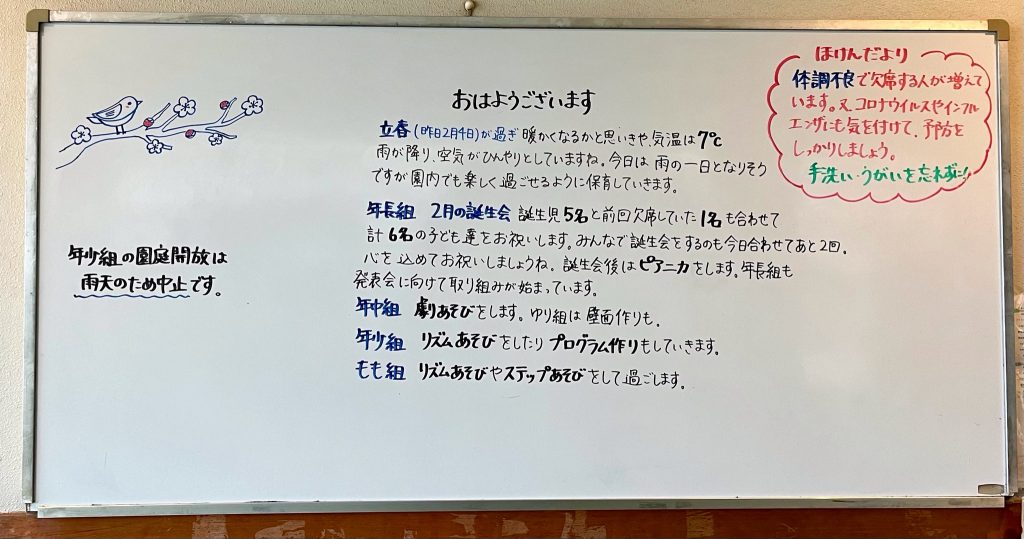 おはようございます
立春(昨日2月4日)が過ぎ 暖かくなるかと思いきや、気温は7℃
雨が降り、空気がひんやりとしていますね。今日は 雨の一日となりそう
ですが園内でも楽しく過ごせるように保育していきます。
年長組 2月の誕生会 誕生児5名と前回欠席していた1名も合わせて
計6名の子ども達をお祝いします。みんなで誕生会をするのも今日合わせてあと2回。
心を込めてお祝いしましょうね。誕生会後はピアニカをします。年長組も
発表会に向けて取り組みが始まっています。
年中組 劇あそびをします。ゆり組は壁面作りも。
年少組 リズムあそびをしたりプログラム作りもしていきます。
もも組 リズムあそびやステップあそびをして過ごします。
年少組の園庭開放は
雨天のため中止です。
ほけんだより
体調不良で欠席する人が増えて
います。又、コロナウイルスやインフル
エンザにも気を付けて、予防を
しっかりしましょう。
手洗い・うがいを忘れずに!!